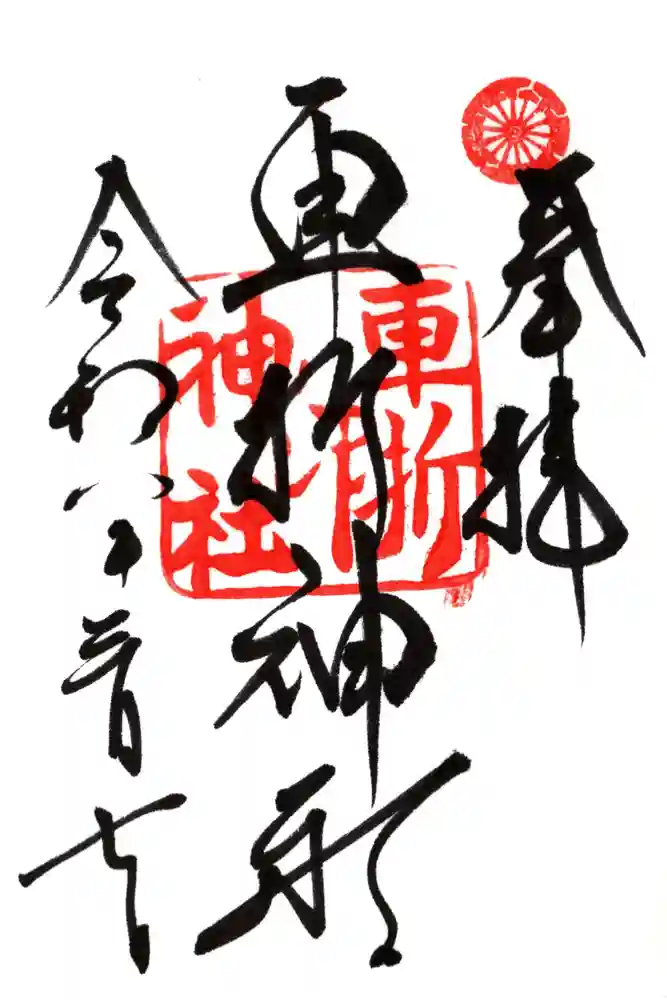 奉拝
車折神社
車折神社
令和八年三月七日